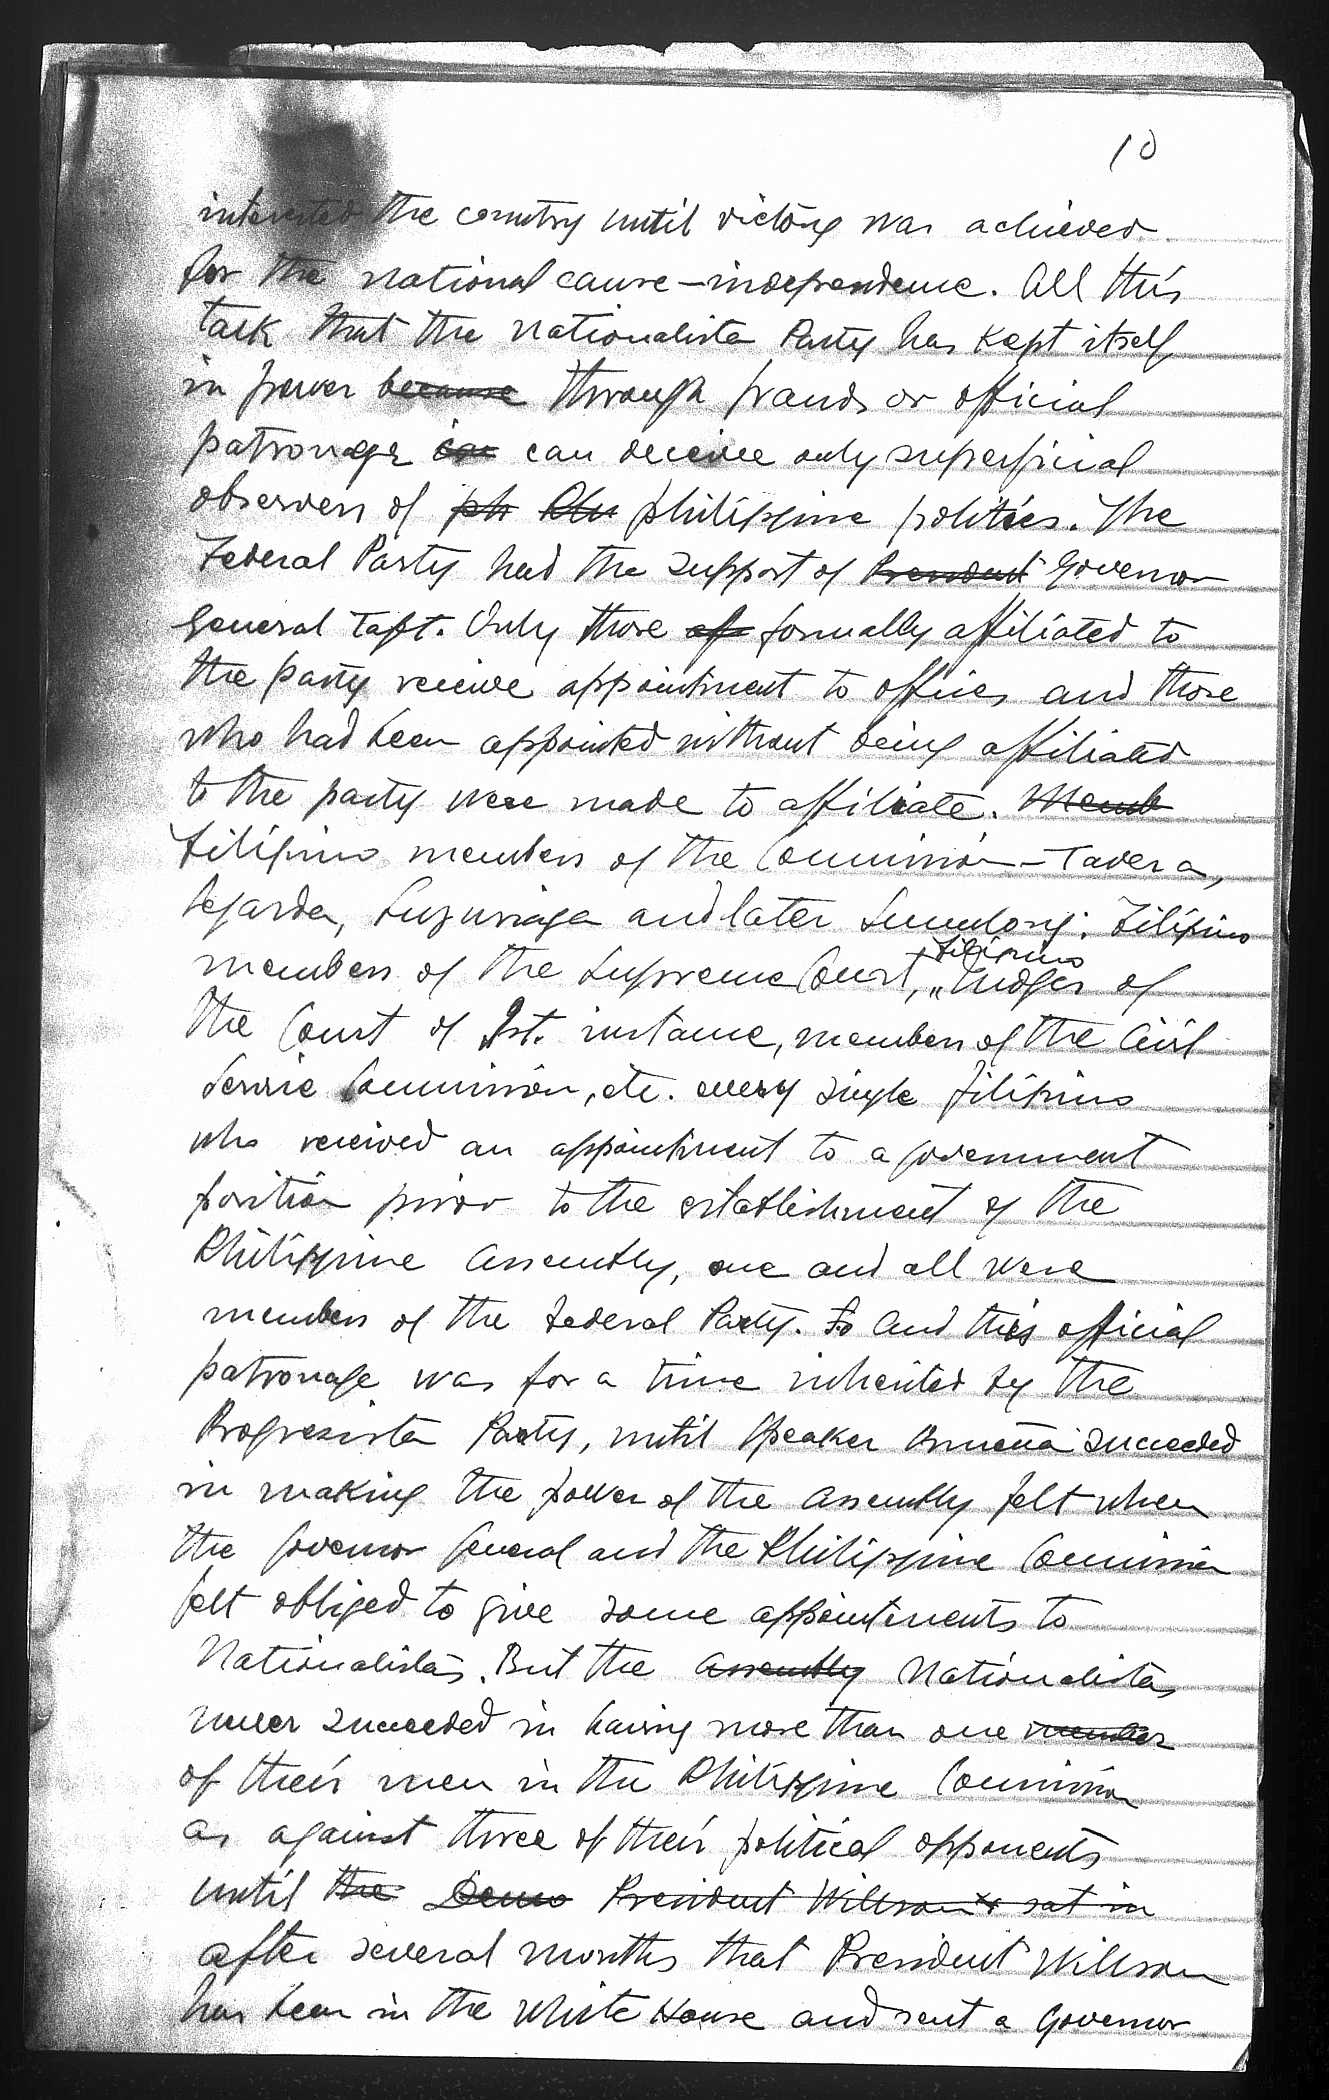 10
interested the country until victory was achieved
for the national cause—independence. All this
talk that the Nationalista Party has kept itself
in power because through frauds or official
patronage can can deceive only superficial
observers of ph Phi philippine politics. The
Federal Party had the support of President Governor
General Taft. Only those af formally affiliated to
the party receive appointment to offices and those
who had been appointed without being affiliated
to the party were made to affiliate. Memb
Filipino members of the Commission—Tavera,
Legarda, Luzuriaga and later Sumulong; Filipino
members of the Supreme Court, Filipino Judges of
the Court of 1st. instance, members of the Civil
Service Commission, etc. every single Filipino
who received an appointment to a government
position prior to the establishment of the
Philippine Assembly, one and all were
members of the Federal Party. And this official
patronage was for a time inherited by the
Progresista Party, until Speaker Osmeña succeeded
in making the power of the Assembly felt when
the Governor General and the Philippine Commission
felt obliged to give some appointments to
Nationalistas. But the Assembly Nationalistas
never succeeded in having more than one member
of their men in the Philippine Commission
as against three of their political opponents
until the Demo President Willson sat in
after several months that President Willson
has been in the White House and sent a Governor